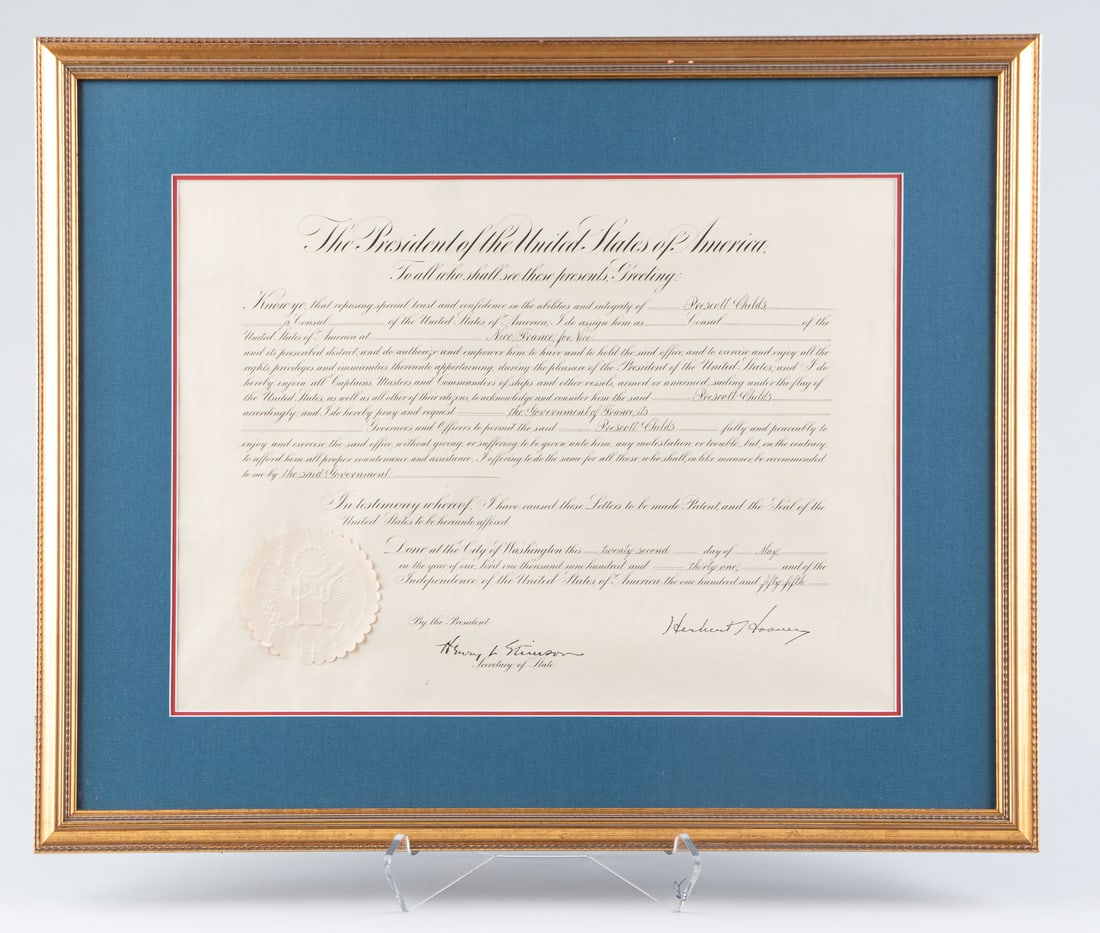 The President of the United States of America,
To all who shall see these presents, Greeting:
Know ye, that reposing special trust and confidence in the abilities and integrity of Prescott Childs
a Consul of the United States of America, I do assign him as Consul of the
United States of America at Nice, France, for Nice
and its prescribed district; and do authorize and empower him to have and to hold the said office, and to exercise and enjoy all the
rights, privileges and immunities thereunto appertaining, during the pleasure of the President of the United States; and I do
hereby enjoin all Captains, Masters and Commanders of ships and other vessels, armed or unarmed, sailing under the flag of
the United States, as well as all other of their citizens, to acknowledge and consider him the said Prescott Childs
accordingly; and I do hereby pray and request the Government of France, its
Governors and Officers to permit the said Prescott Childs fully and peaceably to
enjoy and exercise the said office, without giving, or suffering to be given unto him, any molestation or trouble, but, on the contrary,
to afford him all proper countenance and assistance, I offering to do the same for all those who shall, in like manner, be recommended
to me by the said Government.
In testimony whereof, I have caused these Letters to be made Patent, and the Seal of the
United States to be hereunto affixed.
Done at the City of Washington this twenty-second day of May,
in the year of our Lord one thousand nine hundred and thirty-one, and of the
Independence of the United States of America the one hundred and fifty-fifth.
By the President: Herbert Hoover
Henry L Stimson
Secretary of State.